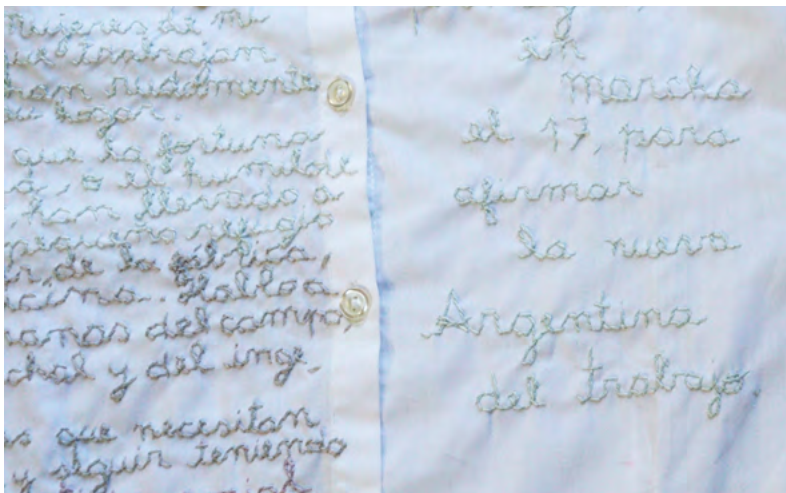 mujeres de mi
que trabajan
rudelmente
su hogar.
que la fortuna
o el humilde
han llevado a
pequeño
de la fábrica,
Hablo a
del campo,
y del inge.
que necesitan
y seguir teniendo
en
marcha
el 17, para
afirmar
la nueva
Argentina
del trabajo.